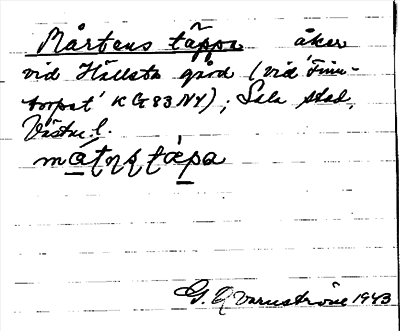 Mårtens täppa åker
vid Hällsta gård (vid 'Finn-
torpet' KG83 NY); Sala stad,
Västm. l.
G. Qvarnström 1943